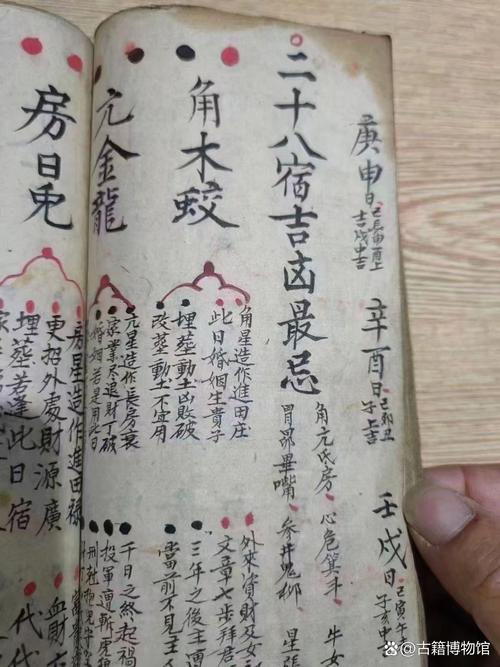 庚申日 己辰申酉上吉戌中吉
辛酉日 己卯丑子上吉
壬戌日 己寅午子亥中
二十八宿吉凶最忌
角亢氐房、心危箕斗、牛女
胃昴畢嘴、参井鬼柳、星張
角木蛟
角星造作進田庄
此日婚姻生貴子
埋葬動土凶敗破
改墓動土不宜用
外來資財及女
文章七步拜君
三年之後主
當前不見主
亢金龍
亢星造作長房衰
家業尽退財丁破
婚姻若是用此日
千日之終起禍
投軍遭斬虎狼
房日兎
房星造作進田禄
更招外處財源廣
埋葬若逢此日宿
富
血財
代代
古籍博物馆